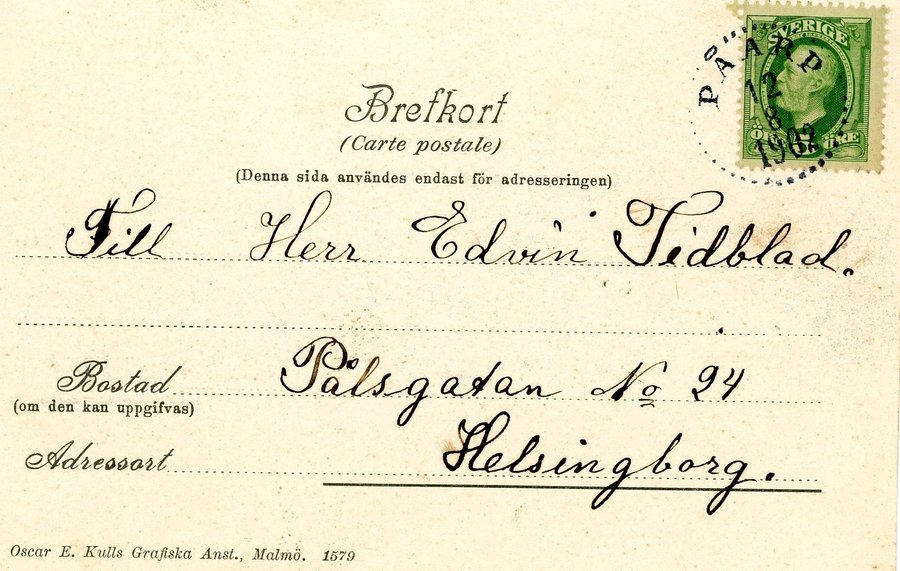 SVERIGE
PÅARP
12
8
1902
Brefkort
(Carte postale)
(Denna sida användes endast för adresseringen)
Till Herr Edvin Tidblad.
Bostad Pålsgatan No 24
(om den kan uppgifvas)
Adressort Helsingborg.
Oscar E. Kulls Grafiska Anst., Malmö. 1579